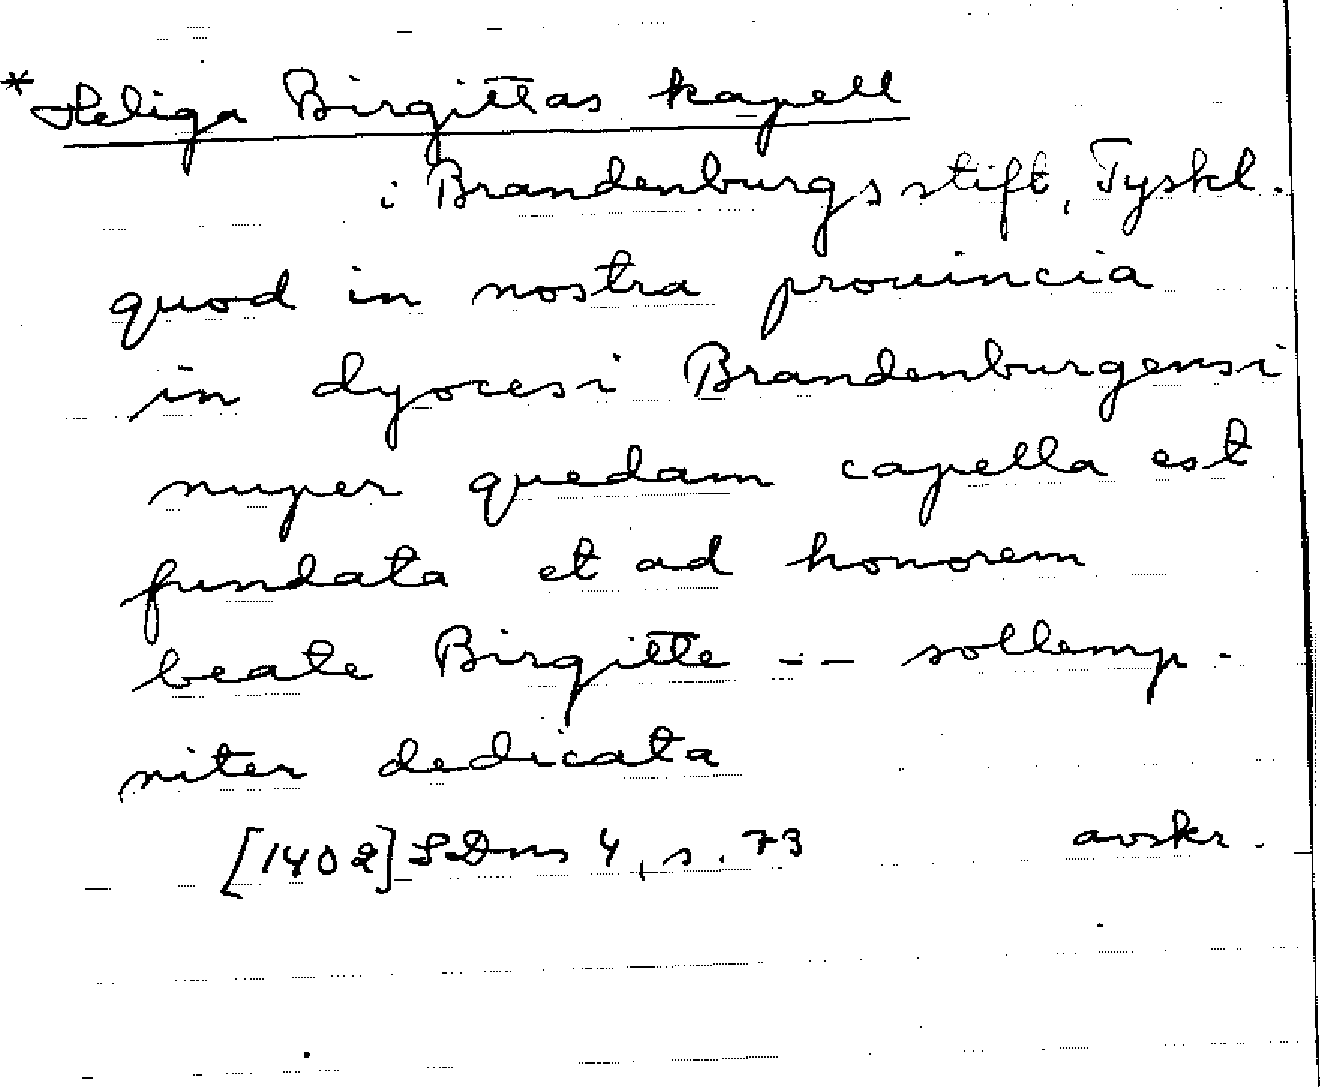 *Heliga Birgittas kapell
i Brandenburgs stift, Tyskl.
quod in nostra prouincia
in dyocesi Brandenburgensi
nuper quedam capella est
fundata et ad honorem
beate Birgitte -- sollemp-
niter dedicata
[1402] SDns 4, s. 73 avskr.